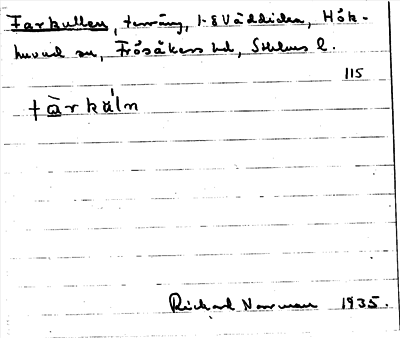 Farkullen, terräng, 1-8 Väddiden, Hök-
huvud sn, Frösåkers hd, Sthlms l.
115
fàrkúln
Richard Norrman 1935.